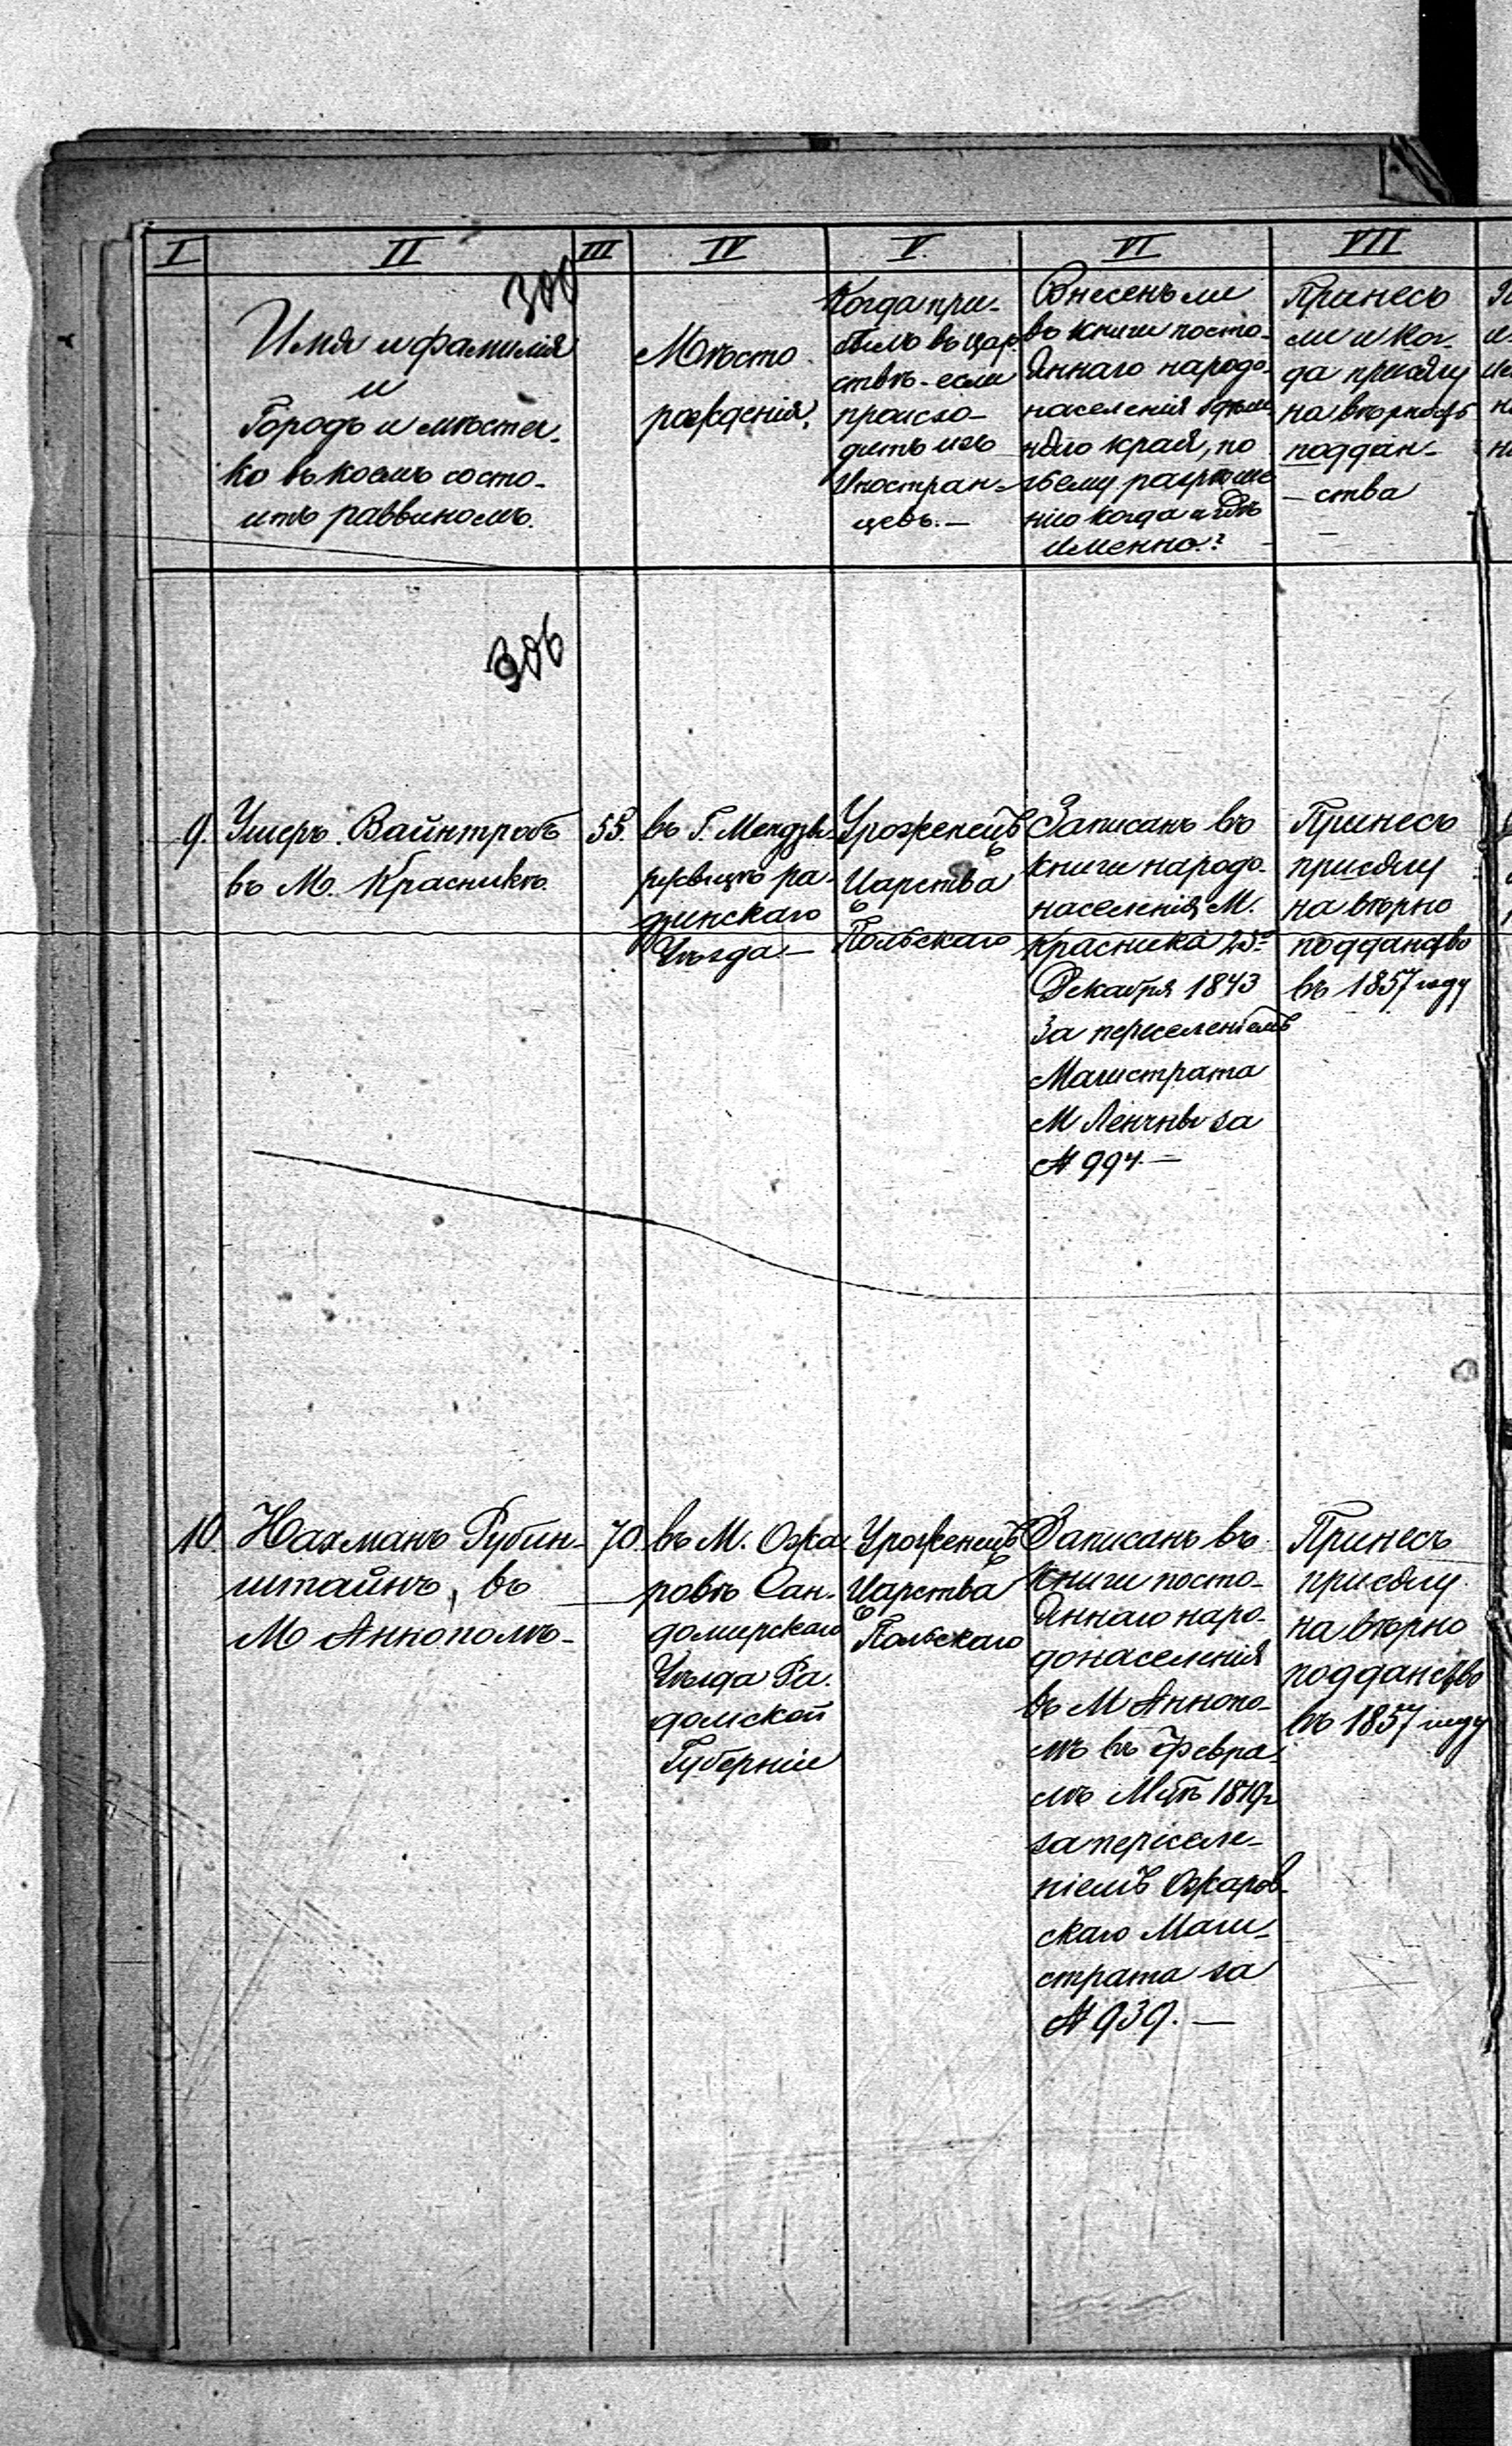 I
II
III
IV
V.
VI
VII
300
Имя и фамилія
и
Городъ и мѣстеч-
ко въ коемъ состо-
итъ раввиномъ.
Мѣсто
рожденія.
Когда при-
былъ въ Цар-
ство - если
происхо-
дитъ изъ
Иностран-
цевъ. —
Внесенъ ли
въ книги посто-
яннаго народо-
населенія
края, по
чьему разрѣше-
нію когда и гдѣ
именно?
Принесъ
ли и ког-
да присягу
на вѣрность
поддан-
ства
306
9.
Ушеръ Вайнтробъ
въ М. Красникѣ.
55.
въ Г. Мендзы-
ржецѣ ра-
дзинскаго
Уѣзда —
Уроженецъ
Царства
Польскаго
Записанъ въ
книги народо-
населенія М.
Красника 25го
Декабря 1843
За переселеніемъ
Магистрата
М Ленчны за
№ 994. —
Принесъ
присягу
на вѣрно
подданство
въ 1857 году
10.
Нахманъ Рубин-
штайнъ, въ
М Аннополѣ -
70.
въ М. Ожа-
ровѣ Сан-
домирскаго
Уѣзда Ра-
домской
Губерніи
Уроженецъ
Царства
Польскаго
Записанъ въ
книги посто-
яннаго наро-
донаселенія
въ М Аннопо-
лѣ въ Февра-
лѣ Мцѣ
за переселе-
ніемъ Ожаров-
скаго Маги-
страта за
№ 939. —
Принесъ
присягу
на вѣрно
подданство
въ 1857 году